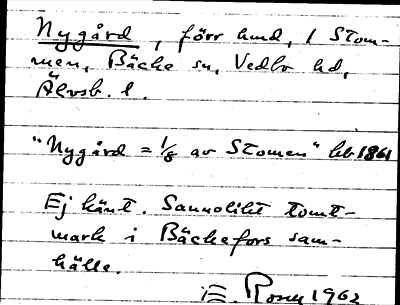 Nygård, förr hmd, 1 Stom-
men, Bäcke sn, Vedbo hd,
Älvsb. l.
"Nygård = 1/8 av Stomen" hb 1861
Ej känt. Sannolikt tomt-
mark i Bäckefors sam-
hälle.
E. Rosell 1962